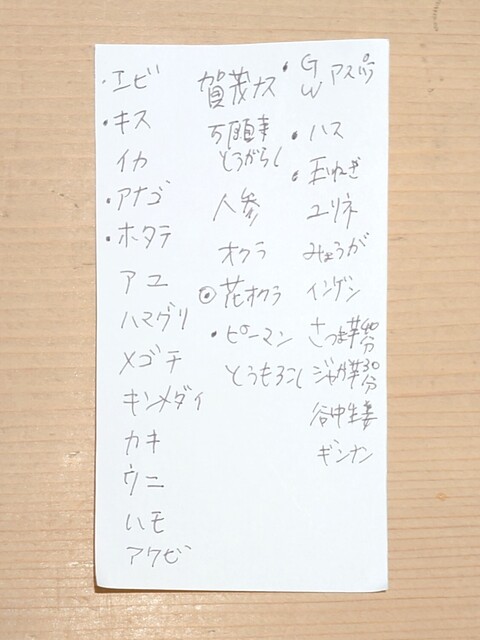 ・エビ
・キス
イカ
・アナゴ
・ホタテ
アユ
ハマグリ
メゴチ
キンメダイ
カキ
ウニ
ハモ
アケビ
賀茂ナス
万願寺
とうがらし
人参
オクラ
◎花オクラ
・ピーマン
とうもろこし
・GWアスパラ
・ハス
・玉ねぎ
ユリネ
みょうが
インゲン
さつま芋40分
ジャガ芋30分
谷中生姜
ギンナン